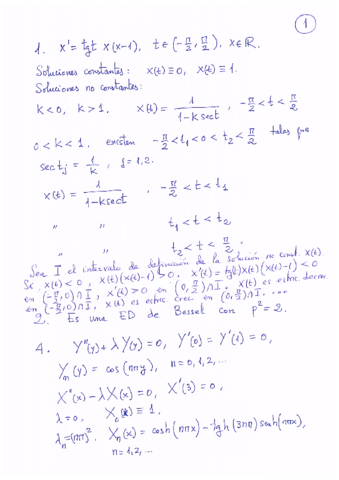 1
1. x' = tgt x(x-1), t ∈ (-π/2, π/2), x ∈ ℝ.
Soluciones constantes: x(t) ≡ 0, x(t) ≡ 1.
Soluciones no constantes:
k<0, k>1, x(t) = 1/(1-k sect), -π/2 < t < π/2
0<k<1. existen -π/2 < t₁ < 0 < t₂ < π/2 tales que
sec tⱼ = 1/k, j=1,2.
x(t) = 1/(1-ksect), -π/2 < t < t₁
" " t₁ < t < t₂
" " t₂ < t < π/2.
Sea I el intervalo de definición de la solución no const. x(t).
Si x(t) < 0, x(t)(x(t)-1) > 0. x'(t) = tg(t) x(t)(x(t)-1) < 0
en (-π/2, 0) ∩ I, x'(t) > 0 en (0, π/2) ∩ I. x(t) es estric. decrec.
en (-π/2, 0) ∩ I, x(t) es estric. crec. en (0, π/2) ∩ I, ...
2. Es una ED de Bessel con p² = 2.
4. Y''(y) + λ Y(y) = 0, Y'(0) = Y'(1) = 0,
Yₙ(y) = cos(nπy), n = 0,1,2,...
X''(x) - λ X(x) = 0, X'(3) = 0,
λ = 0. X₀(x) ≡ 1.
λₙ = (nπ)². Xₙ(x) = cosh(nπx) - tgh(3nπ) senh(nπx),
n = 1,2,...